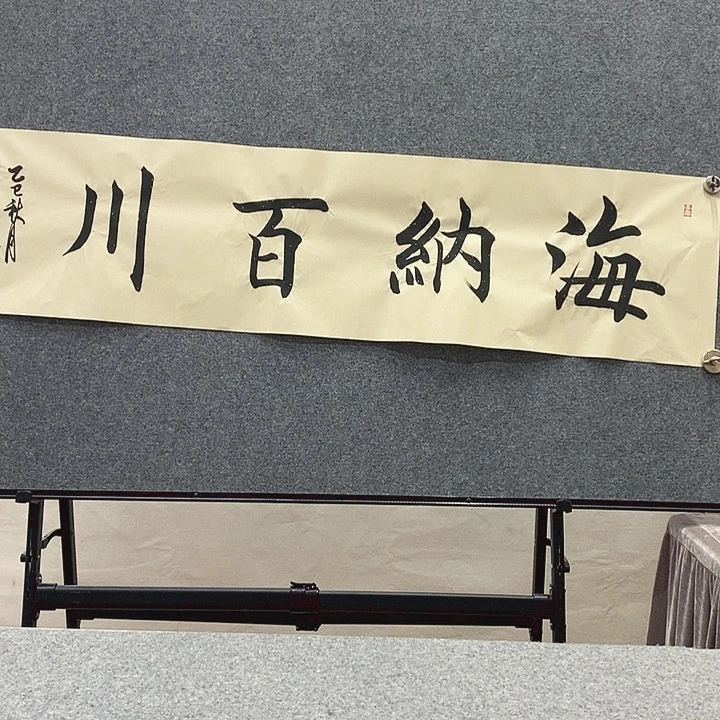 海納百川
乙巳秋月